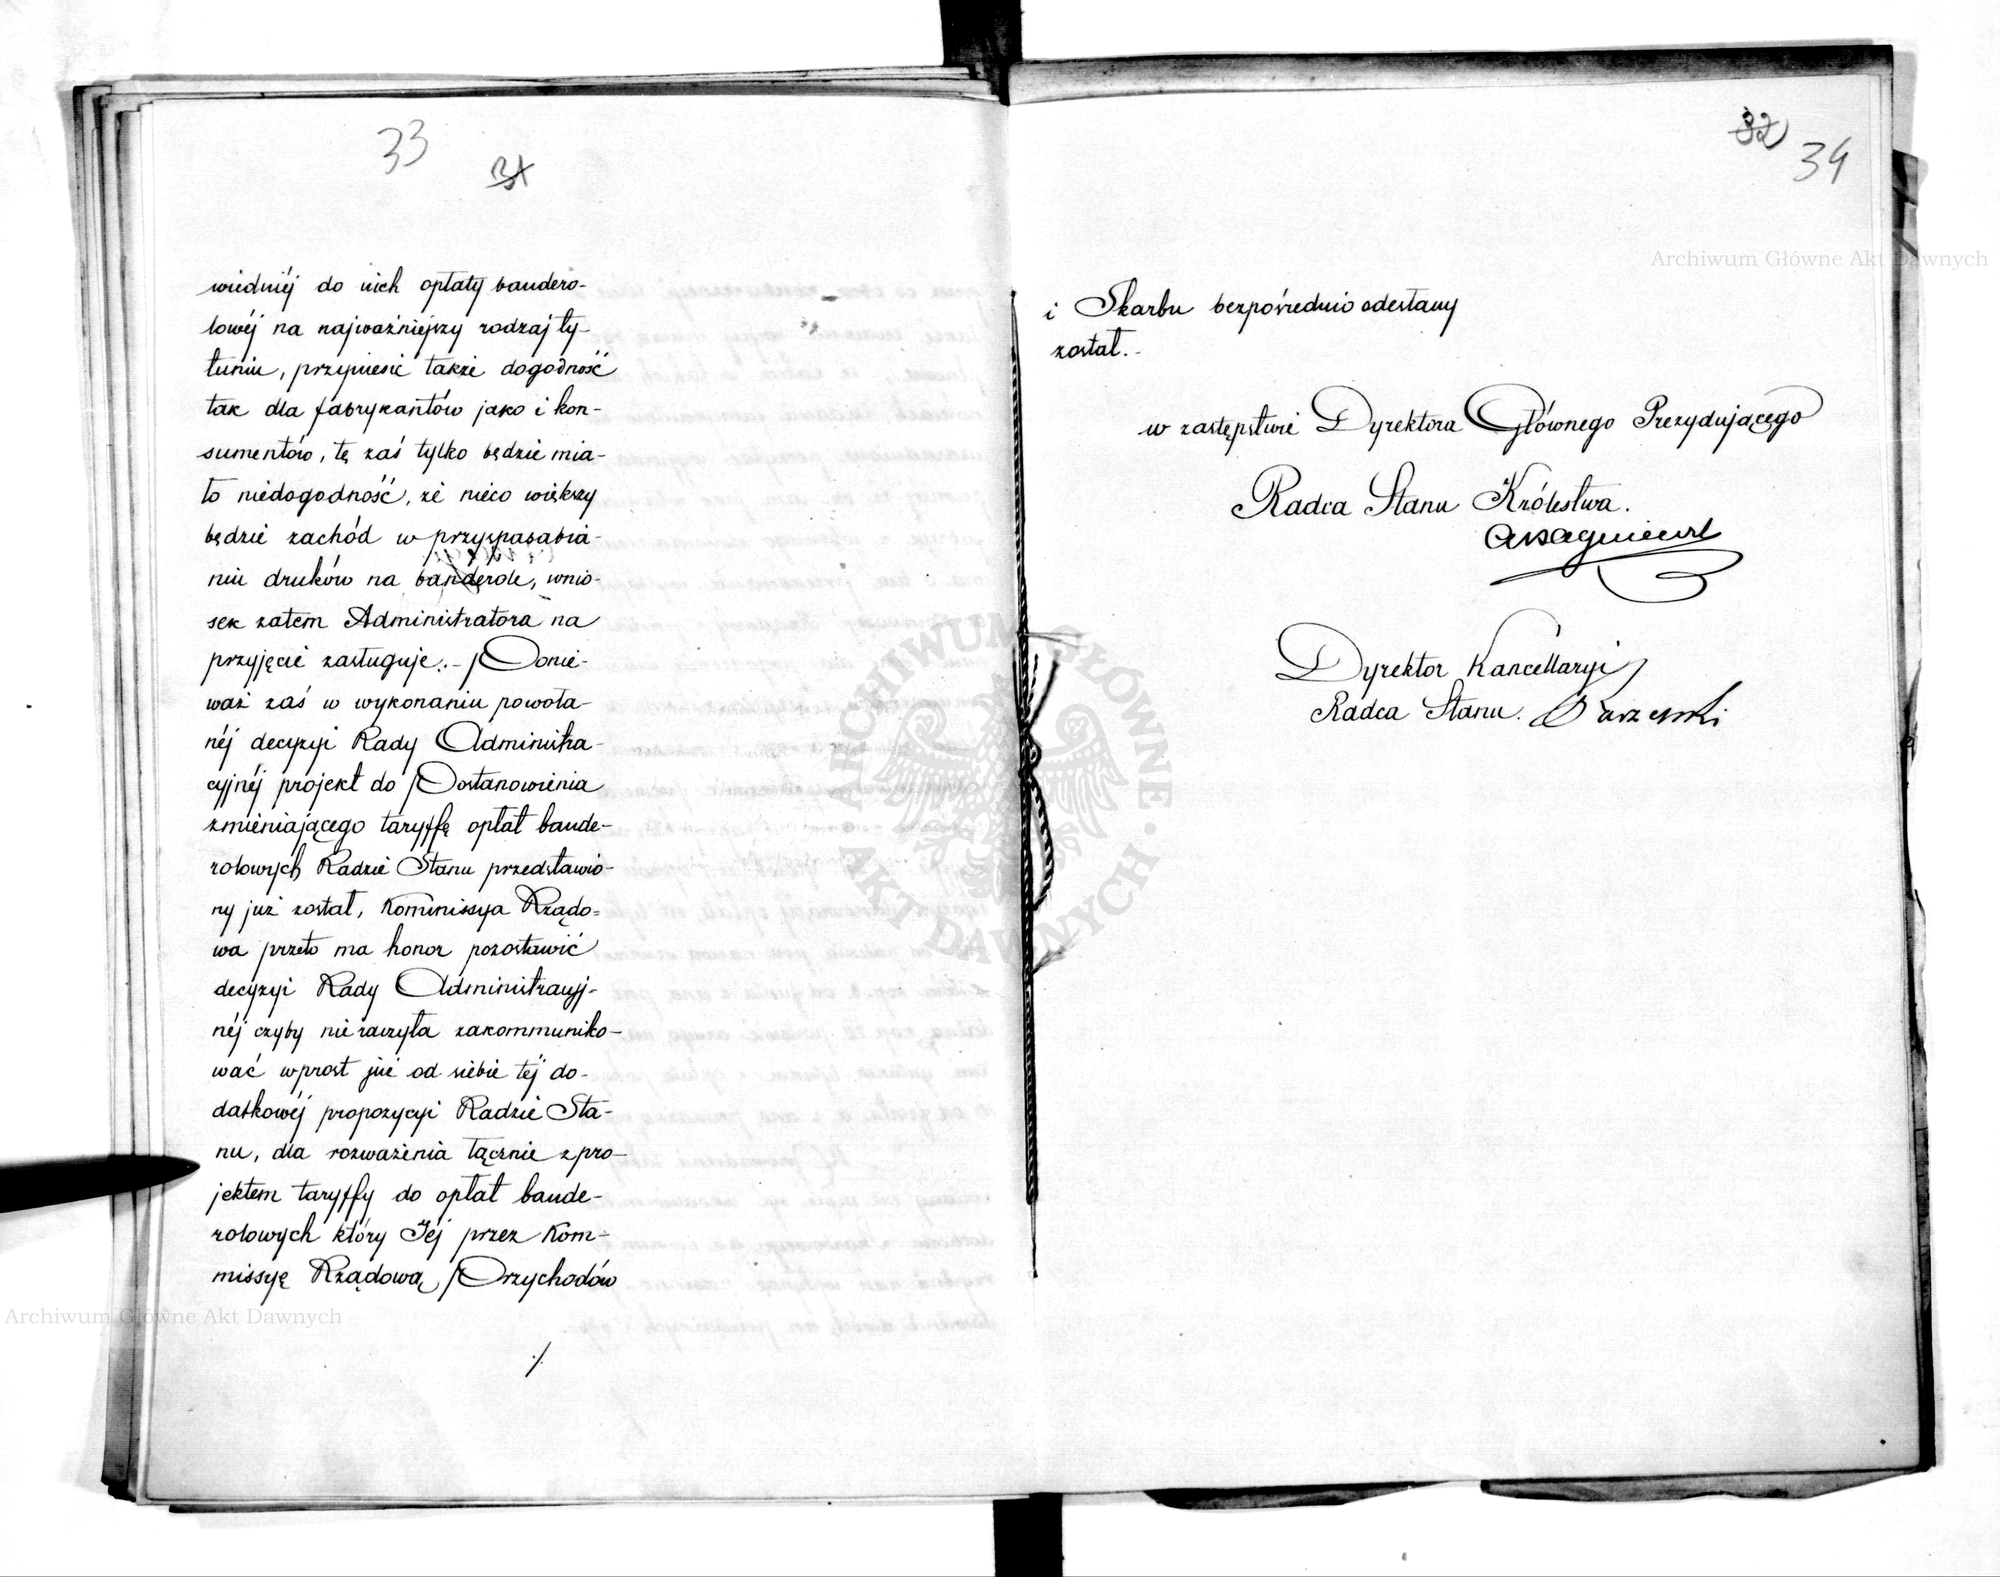 33
31
wiedniéj do nich opłaty bandero-
lowéj na najważniejszy rodzaj ty-
tuniu, przyniesie także dogodność
tak dla fabrykantów jako i kon-
sumentów, tę zaś tylko będzie mia-
ło niedogodność, że nieco większy
będzie zachód w przysposabia-
niu druków na banderole, wnio-
sek zatem Administratora na
przyjęcie zasługuje.- Ponie-
waż zaś w wykonaniu powoła-
néj decyzyi Rady Administra-
cyjnéj projekt do Postanowienia
zmieniającego taryffę opłat bande-
rolowych Radzie Stanu przedstawio-
ny już został, Kommissya Rządo=
wa przeto ma honor pozostawić
decyzyi Rady Administracyj-
néj czyby nie raczyła zakommuniko-
wać wprost już od siebie téj do-
datkowéj propozycyi Radzie Sta-
nu, dla rozważenia łącznie z pro-
jektem taryffy do opłat bande-
rolowych który Jéj przez Kom-
missyę Rządową Przychodów
./.
32
34
i Skarbu bezpośrednio odesłany
został.-
w zastępstwie Dyrektora Głównego Prezydującego
Radca Stanu Królestwa.
Dyrektor Kancellaryi
Radca Stanu.
Archiwum Główne Akt Dawnych
Archiwum Główne Akt Dawnych
ARCHIWUM GŁÓWNE
AKT DAWNYCH